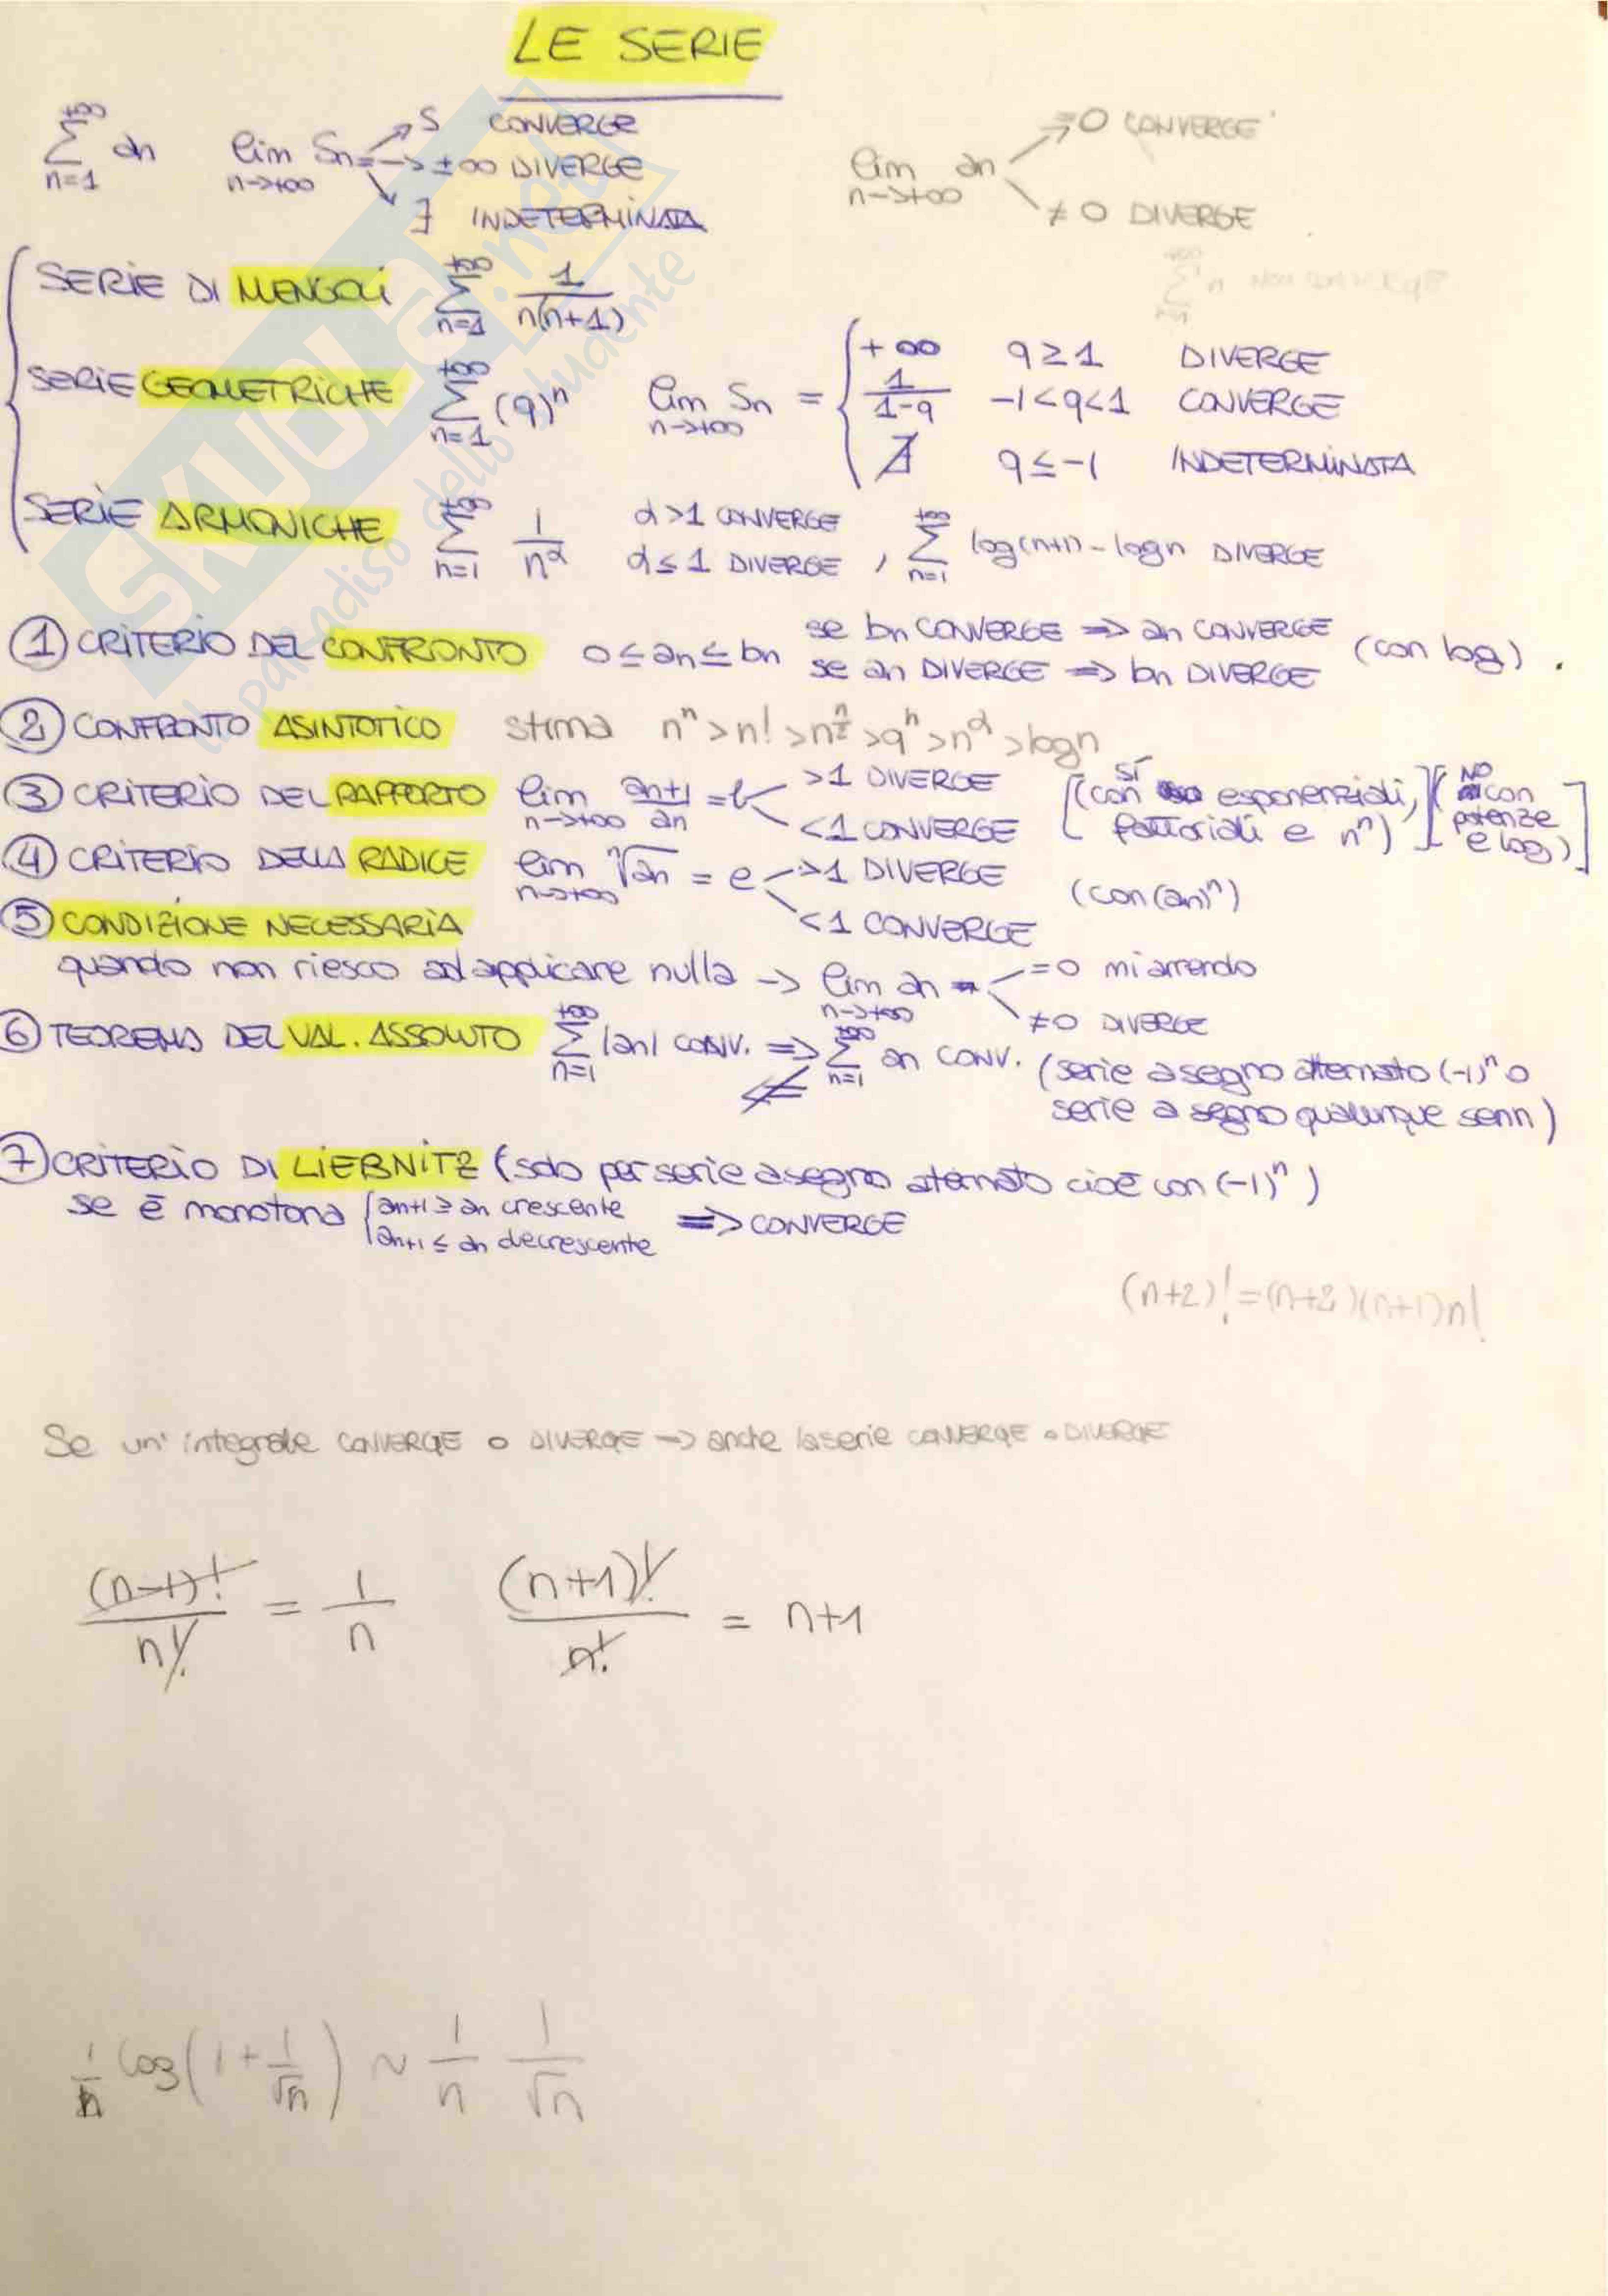 LE SERIE
+∞ Σ n=1 an lim n->+∞ Sn = -> S CONVERGE
-> ±∞ DIVERGE
∃ INDETERMINATA
lim n->+∞ an =0 CONVERGE
≠ 0 DIVERGE
SERIE DI MENGOLI +∞ Σ n=1 1/n(n+1)
SERIE GEOMETRICHE +∞ Σ n=1 (q)^n lim n->+∞ Sn = { +∞ q≥1 DIVERGE
1/1-q -1<q<1 CONVERGE
∄ q≤-1 INDETERMINATA
SERIE ARMONICHE +∞ Σ n=1 1/n^α α>1 CONVERGE
α≤1 DIVERGE , +∞ Σ n=1 log(n+1)-logn DIVERGE
1 CRITERIO DEL CONFRONTO 0≤an≤bn se bn CONVERGE => an CONVERGE
se an DIVERGE => bn DIVERGE (con log).
2 CONFRONTO ASINTOTICO stima n^n > n! > n^n/2 > q^n > n^α > logn
3 CRITERIO DEL RAPPORTO lim n->+∞ an+1/an = l >1 DIVERGE
<1 CONVERGE
[(con SÍ esponenziali, fattoriali e n^n)] [(NO con potenze e log)]
4 CRITERIO DELLA RADICE lim n->+∞ ⁿ√an = e ->1 DIVERGE
<1 CONVERGE (con (an)^n)
5 CONDIZIONE NECESSARIA
quando non riesco ad applicare nulla -> lim n->+∞ an = =0 mi arrendo
≠0 DIVERGE
6 TEOREMA DEL VAL. ASSOLUTO +∞ Σ n=1 |an| CONV. => +∞ Σ n=1 an CONV. (serie a segno alternato (-1)^n o
serie a segno qualunque senn)
7 CRITERIO DI LIEBNITZ (solo per serie a segno alternato cioè con (-1)^n)
se è monotona { an+1 ≥ an crescente
an+1 ≤ an decrescente => CONVERGE
(n+2)! = (n+2)(n+1)n!
Se un' integrale CONVERGE o DIVERGE -> anche la serie CONVERGE o DIVERGE
(n-1)!/n! = 1/n (n+1)!/n! = n+1
1/n log(1+1/√n) ~ 1/n 1/√n
SKUOLA.net
il paradiso dello studente